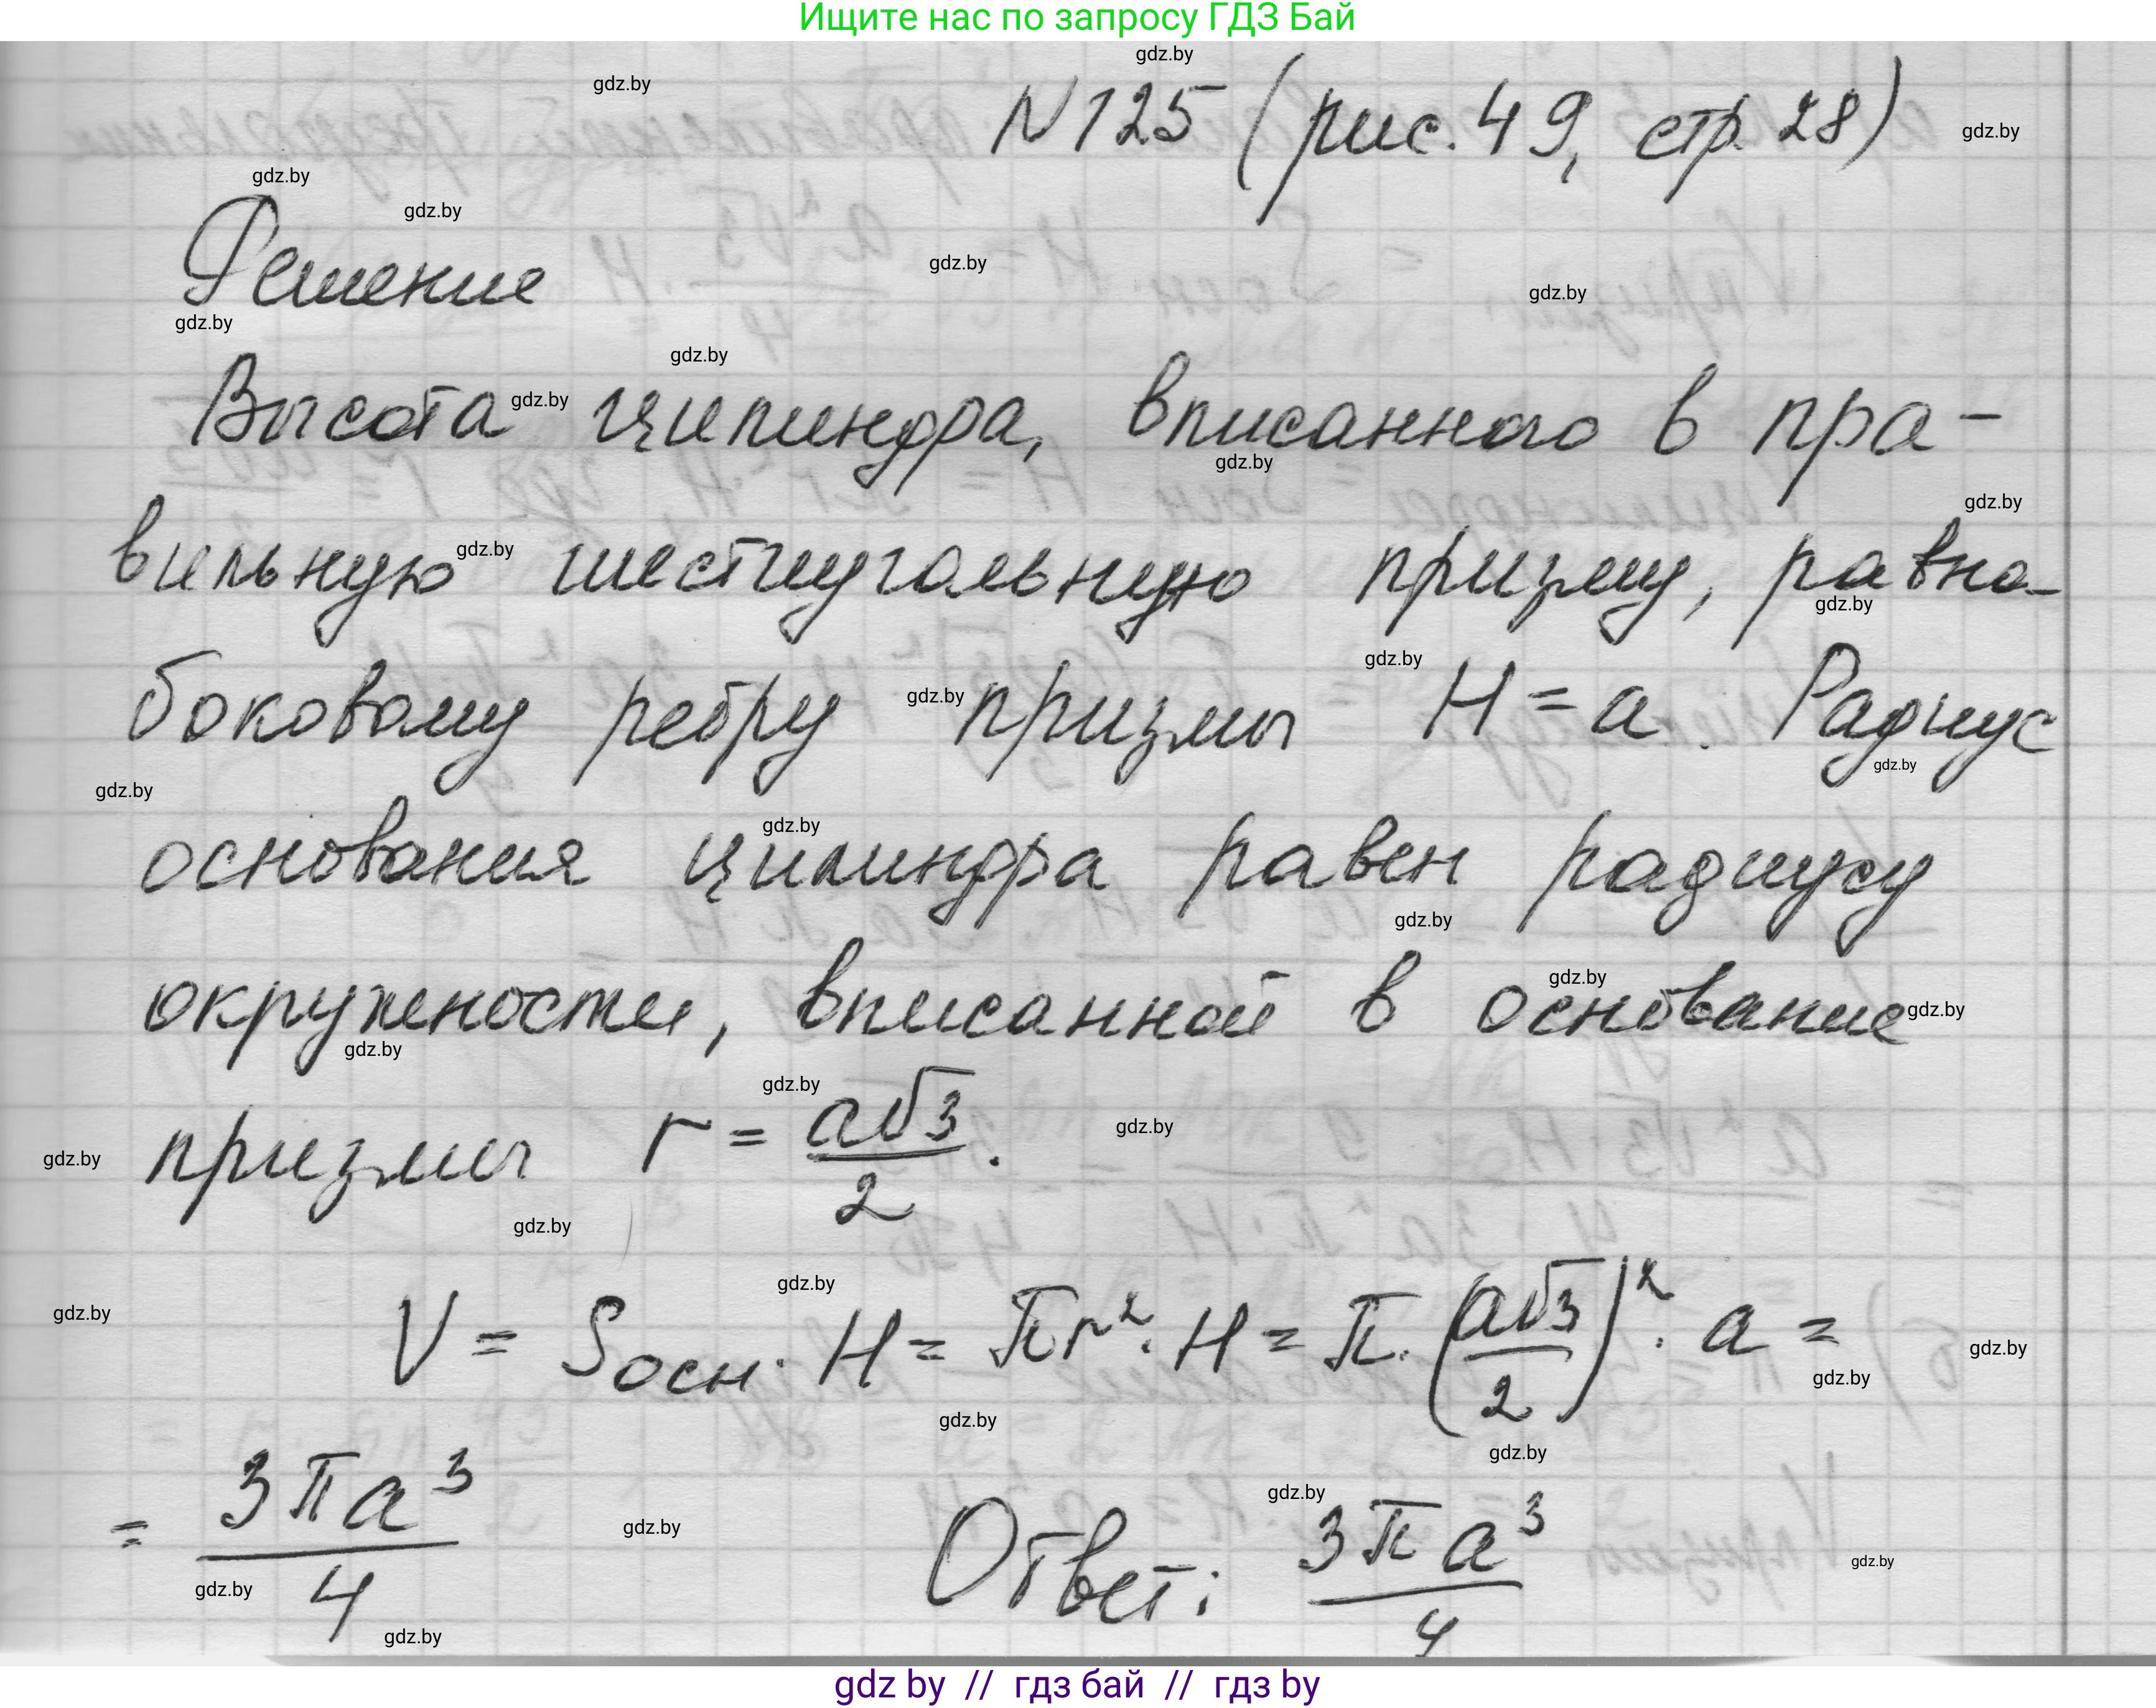 Ищите нас по запросу ГДЗ Бай
gdz.by
gdz.by
N 125 (рис. 49, стр. 28)
gdz.by
gdz.by
gdz.by
Решение
gdz.by
gdz.by
gdz.by
gdz.by
Высота цилиндра, вписанного в пра-
gdz.by
gdz.by
gdz.by
вильную шестиугольную призму, равна
gdz.by
gdz.by
gdz.by
боковому ребру призмы H = a. Радиус
gdz.by
gdz.by
gdz.by
gdz.by
основания цилиндра равен радиусу
gdz.by
gdz.by
окружности, вписанной в основание
gdz.by
gdz.by
gdz.by
призмы r = a√3/2.
gdz.by
gdz.by
gdz.by
gdz.by
gdz.by
V = Sосн · H = πr² · H = π · (a√3/2)² · a =
gdz.by
gdz.by
gdz.by
gdz.by
gdz.by
= 3πa³/4 Ответ: 3πa³/4
gdz.by
gdz.by
gdz.by
gdz.by
gdz.by
gdz by // гдз бай // гдз by